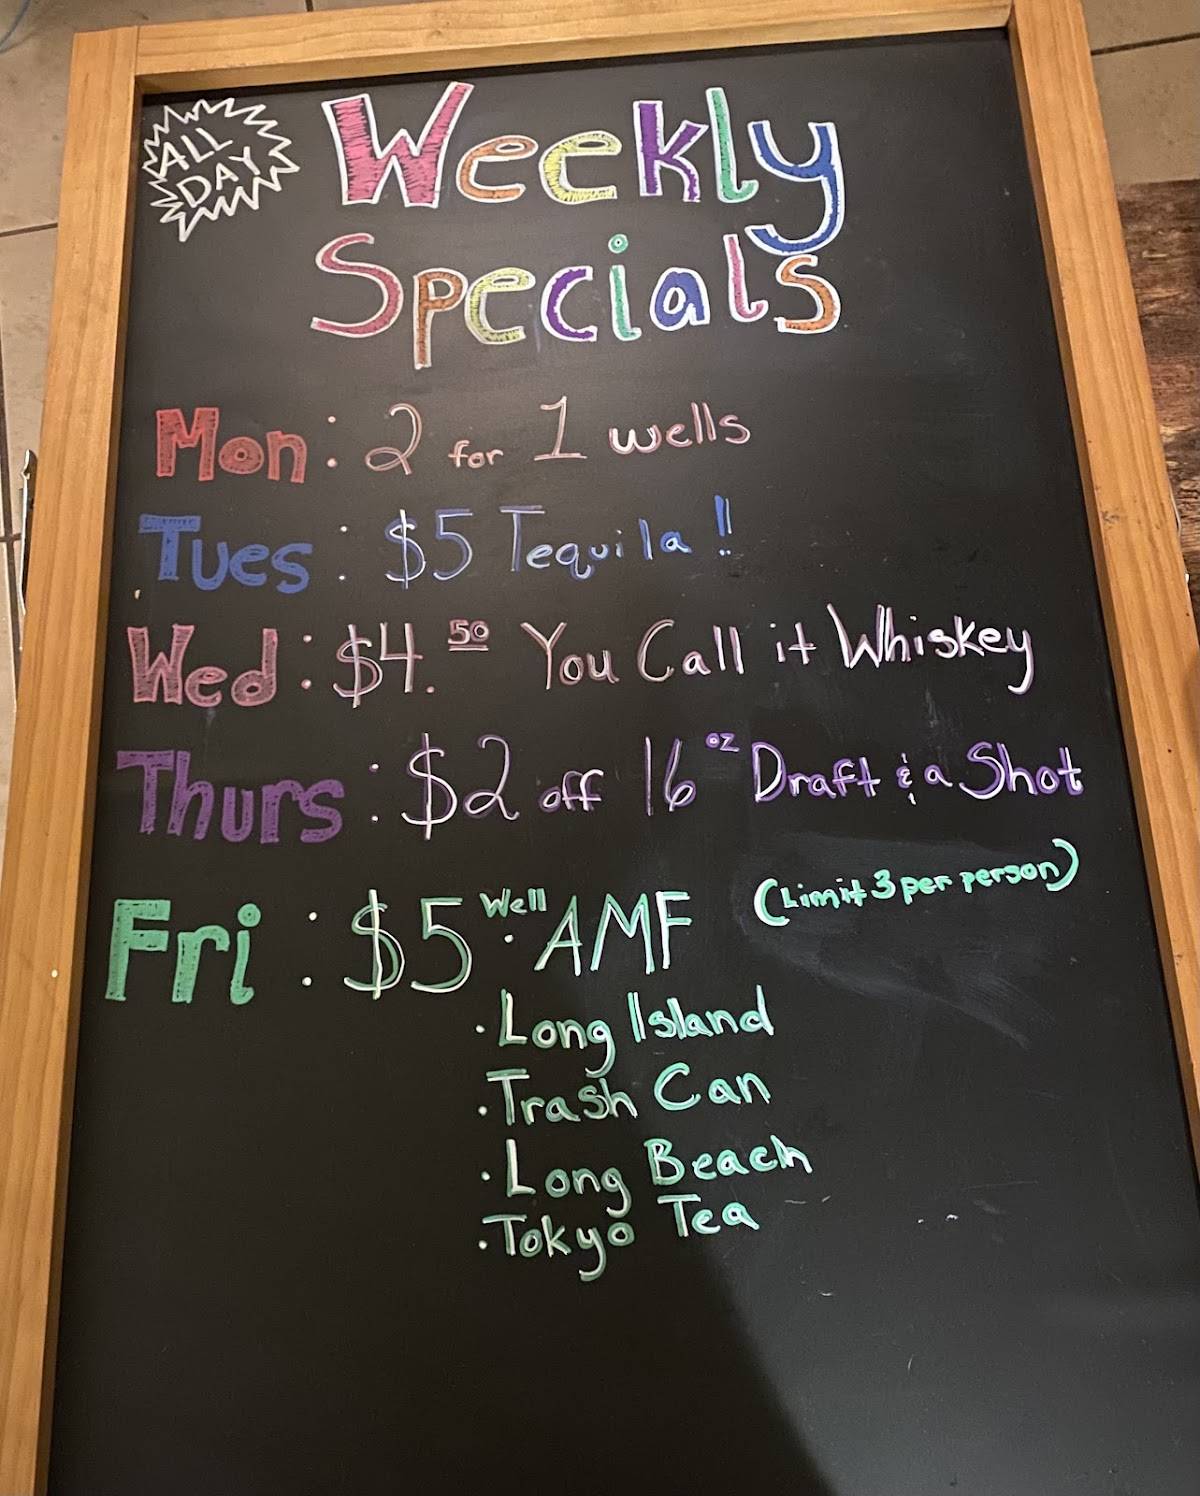 ALL
DAY
Weekly
Specials
Mon: 2 for 1 wells
Tues: $5 Tequila!!
Wed: $4.50 You Call it Whiskey
Thurs: $2 off 16 oz Draft & a Shot
Fri: $5 Well · AMF (Limit 3 per person)
· Long Island
· Trash Can
· Long Beach
· Tokyo Tea